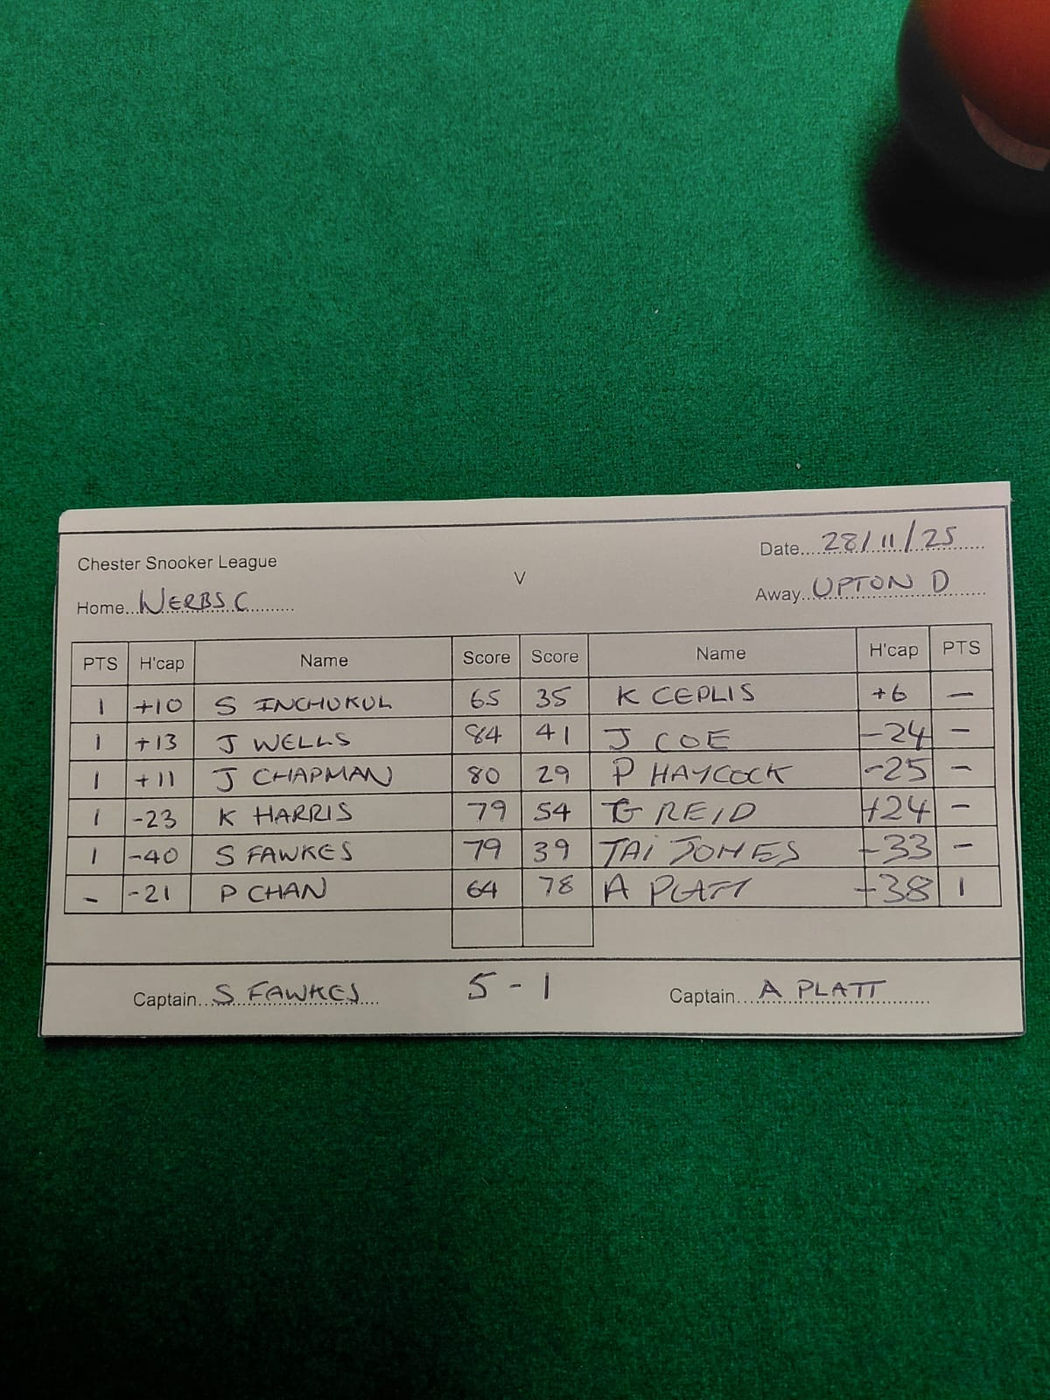 Chester Snooker League
Date 28/11/25
V
Home WERBS C
Away UPTON D
PTS H'cap Name Score Score Name H'cap PTS
1 +10 S INCHUKUL 65 35 K CEPLIS +6 -
1 +13 J WELLS 84 41 J COE -24 -
1 +11 J CHAPMAN 80 29 P HAYCOCK -25 -
1 -23 K HARRIS 79 54 G REID +24 -
1 -40 S FAWKES 79 39 TAI JONES -33 -
- -21 P CHAN 64 78 A PLATT -38 1
Captain S FAWKES 5 - 1 Captain A PLATT